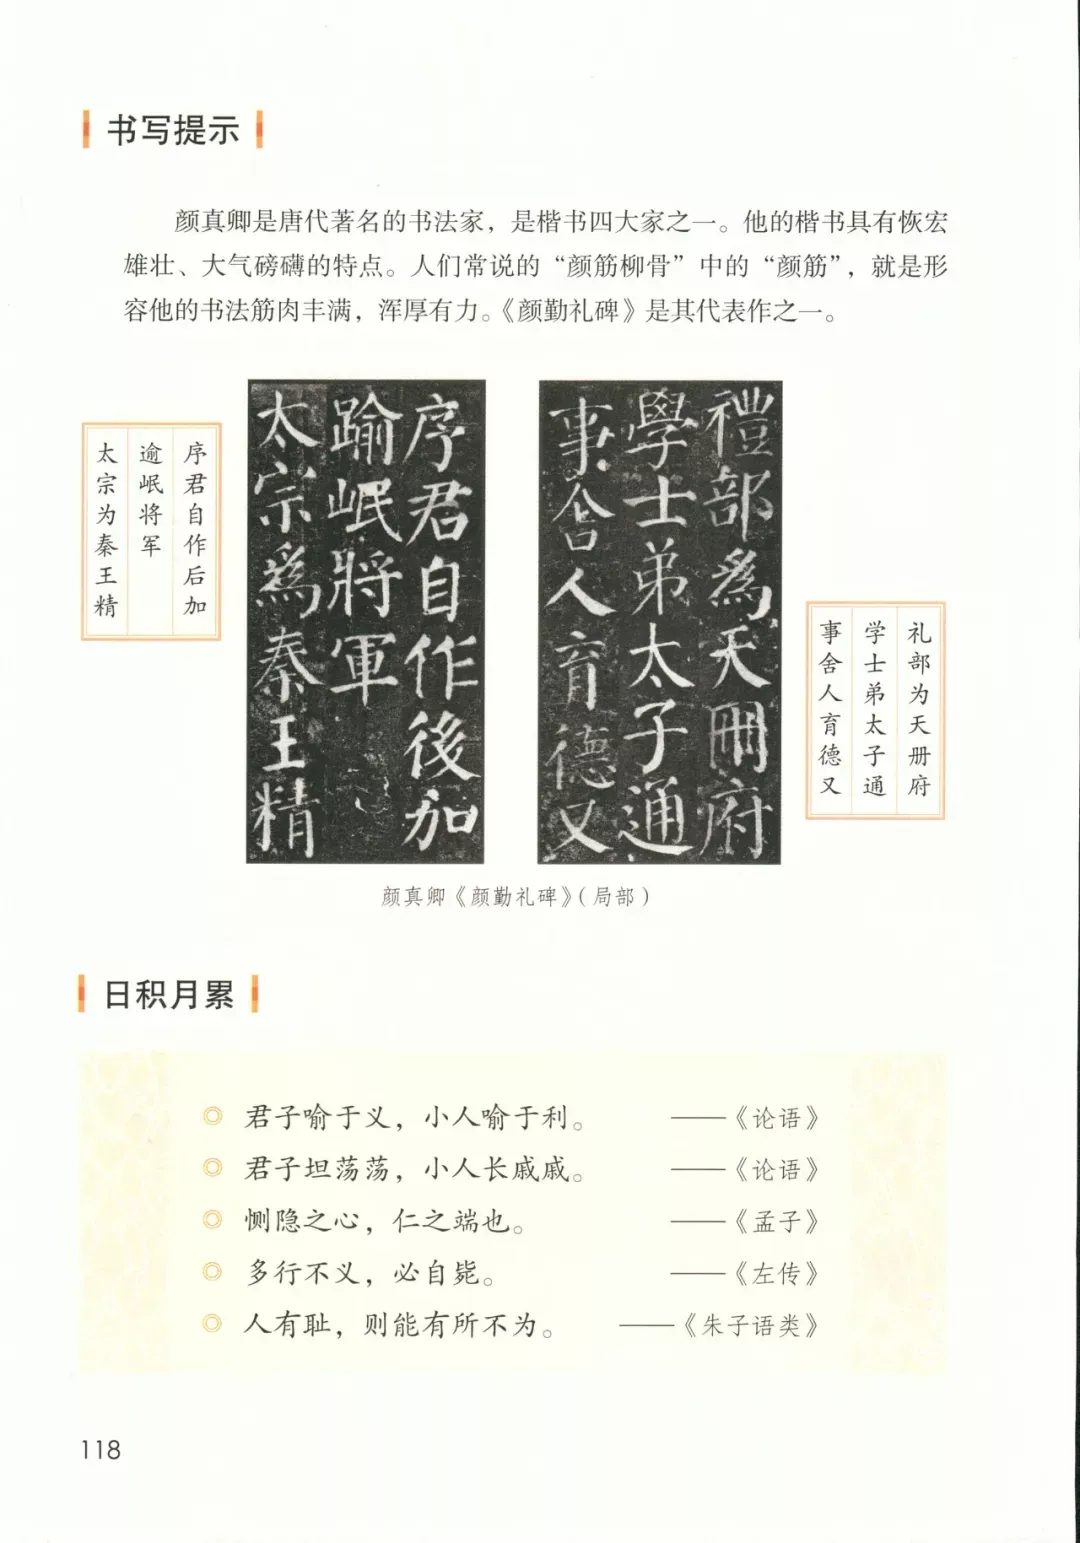 书写提示
颜真卿是唐代著名的书法家，是楷书四大家之一。他的楷书具有恢宏
雄壮、大气磅礴的特点。人们常说的“颜筋柳骨”中的“颜筋”，就是形
容他的书法筋肉丰满，浑厚有力。《颜勤礼碑》是其代表作之一。
序君自作后加
逾岷将军
太宗为秦王精
序君自作後加
踰岷將軍
太宗為秦王精
禮部為天冊府
學士弟太子通
事舍人育德又
礼部为天册府
学士弟太子通
事舍人育德又
颜真卿《颜勤礼碑》（局部）
日积月累
◎ 君子喻于义，小人喻于利。 ——《论语》
◎ 君子坦荡荡，小人长戚戚。 ——《论语》
◎ 恻隐之心，仁之端也。 ——《孟子》
◎ 多行不义，必自毙。 ——《左传》
◎ 人有耻，则能有所不为。 ——《朱子语类》
118